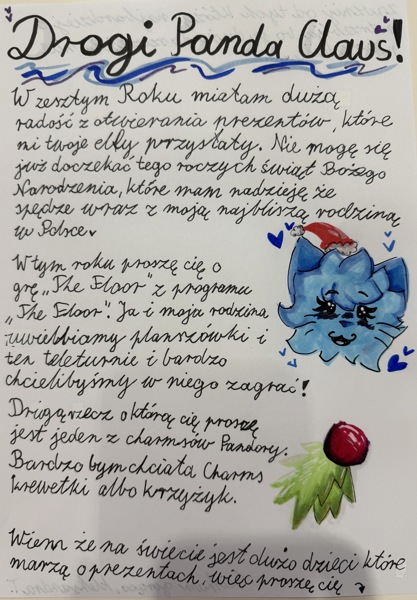 Drogi Panda Claus!
W zesztym Roku miałam dużą
radość z otwierania prezentów, które
mi twoje elfy przysłały. Nie mogę się
już doczekać tego rocznych świąt Bożego
Narodzenia, które mam nadzieję że
spędzę wraz z moją najbliszą rodziną
w Polsce
W tym roku proszę cię o
grę „The Floor" z programu
„The Floor". Ja i moja rodzina
uwielbiamy planszówki i
ten teleturnie i bardzo
chcielibyśmy w niego zagrać!
Drugą rzecz o którą cię proszę
jest jeden z charmsów Pandory.
Bardzo bym chciała Charms
krewetki albo krzyżyk.
Wiem że na świecie jest dużo dzieci które
marzą o prezentach, więc proszę cię